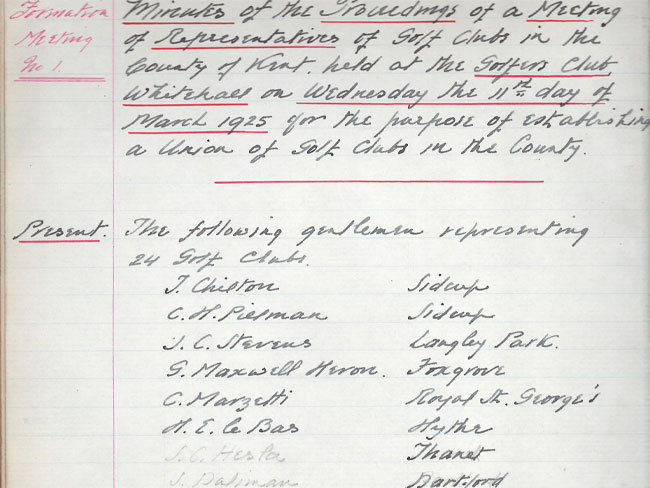 Formation
Meeting
No 1.
Minutes of the Proceedings of a Meeting
of Representatives of Golf Clubs in the
County of Kent. held at the Golfers Club,
Whitehall on Wednesday the 11th day of
March 1925 for the purpose of establishing
a Union of Golf Clubs in the County.
Present. The following gentlemen representing
24 Golf Clubs.
J. Chilton Sidcup
C. H. Pielman Sidcup
J. C. Stevens Langley Park.
G. Maxwell Heron. Foxgrove
C. Marzetti Royal St. George's
H. E. le Bas Hythe
J. C. Thanet
J. Dartford